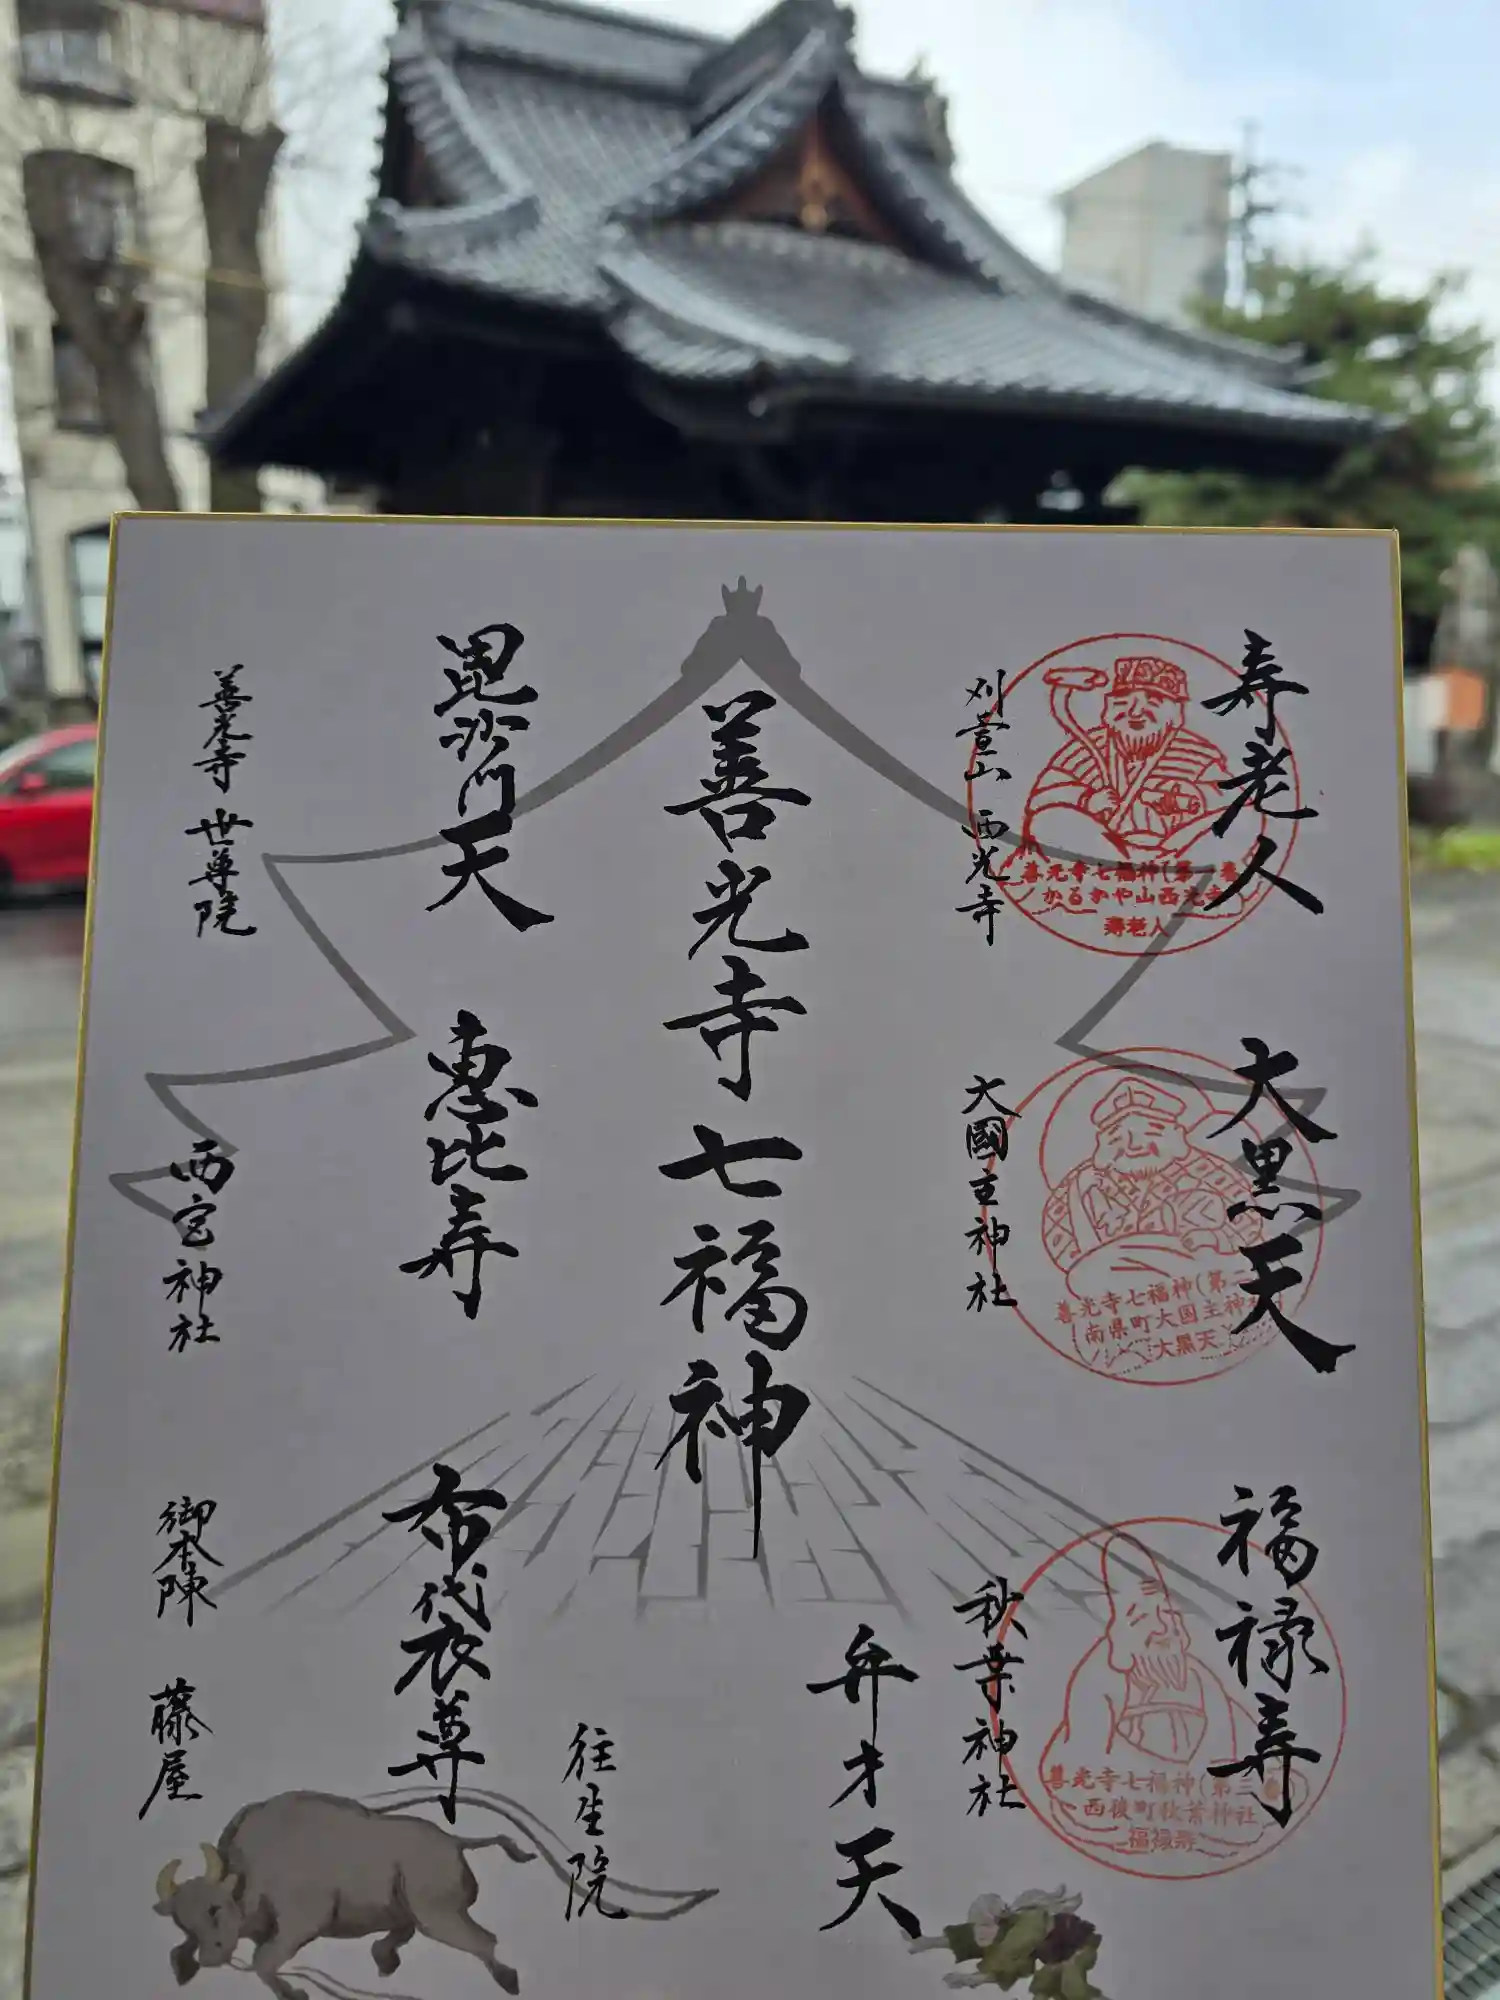 寿老人
善光寺七福神(第一番)
かるかや山西光寺
寿老人
刈萱山 西光寺
大黒天
善光寺七福神(第二
南県町大国主神社
大黒天
大國主神社
福禄寿
善光寺七福神(第三番)
西後町秋葉神社
福禄寿
秋葉神社
善光寺七福神
弁才天
往生院
毘沙門天
善光寺 世尊院
恵比寿
西宮神社
布袋尊
御本陳 藤屋